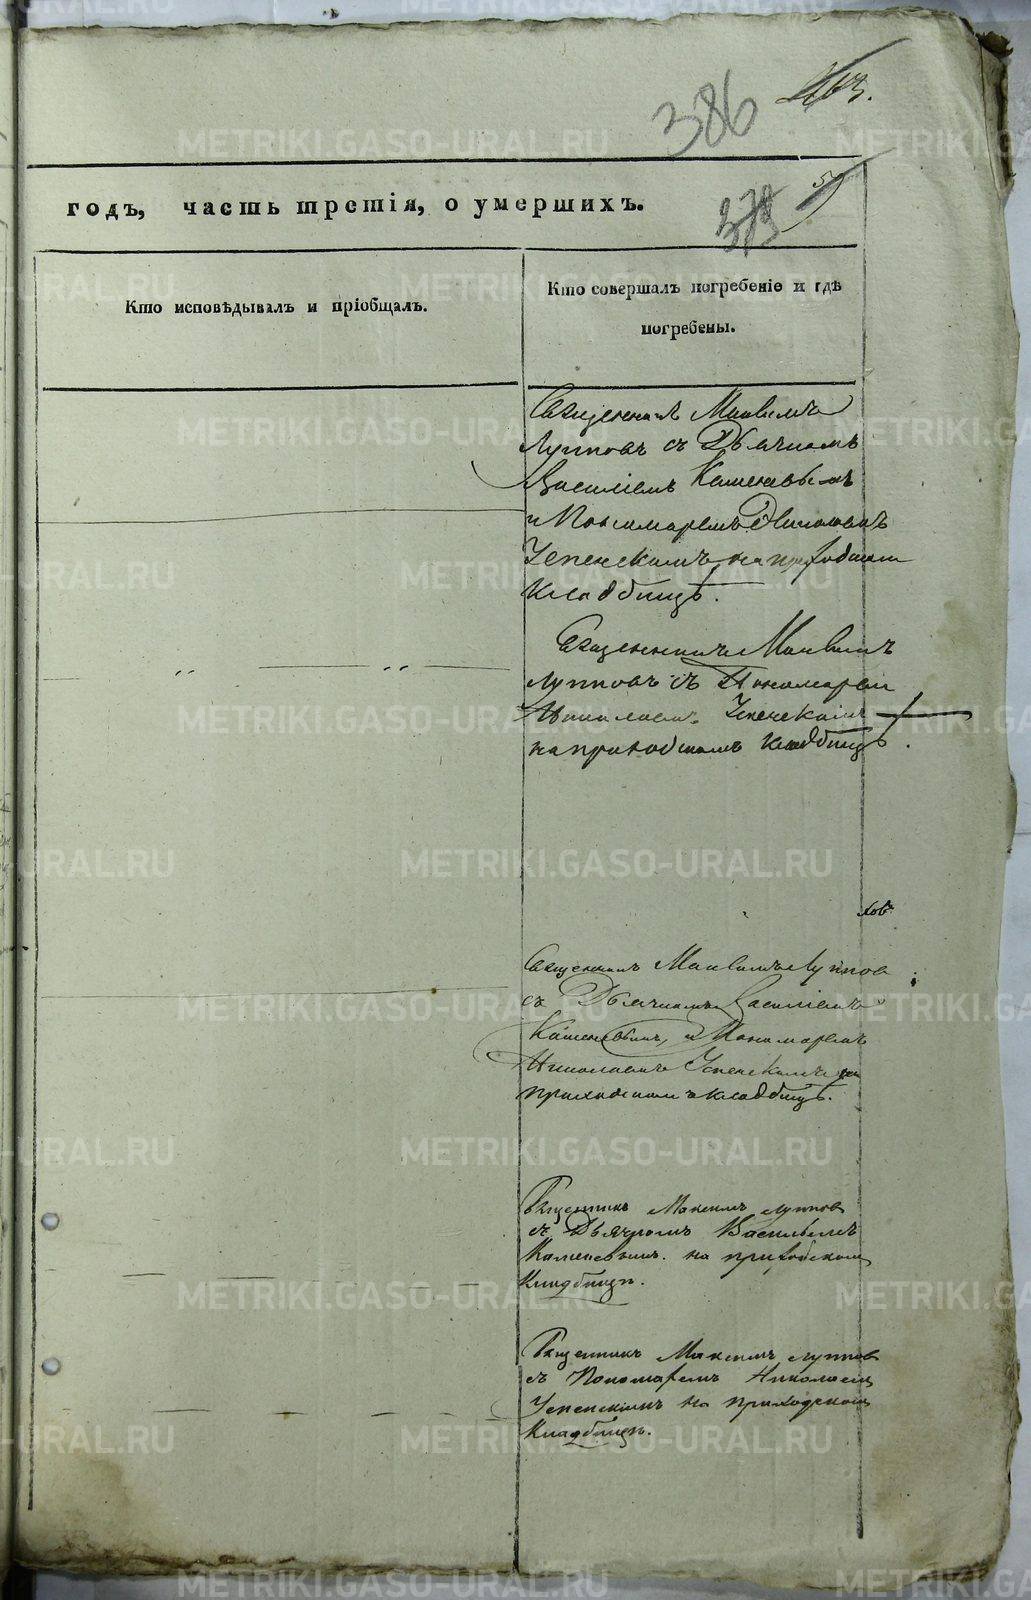 386
годъ, часть третія, о умершихъ.
Кто исповѣдывалъ и пріобщалъ.
Кто совершалъ погребеніе и гдѣ
погребены.
Священникъ Максимъ
Лупповъ съ Дьячкомъ
Василіемъ Каменевымъ
и Пономаремъ Николаемъ
Успенскимъ на приходскомъ
кладбищѣ.
Священникъ Максимъ
Лупповъ съ Пономаремъ
Николаемъ Успенскимъ
на приходскомъ кладбищѣ.
Священникъ Максимъ Луппов
съ Дьячкомъ Василіемъ
Каменевымъ, и Пономаремъ
Николаемъ Успенскимъ на
приходскомъ кладбищѣ.
Священникъ Максимъ Луппов
съ Дьячкомъ Васильемъ
Каменевымъ на приходском
Кладбищѣ.
Священникъ Максимъ Луппов
съ Пономаремъ Николаем
Успенскимъ на приходском
Кладбищѣ.
METRIKI.GASO-URAL.RU